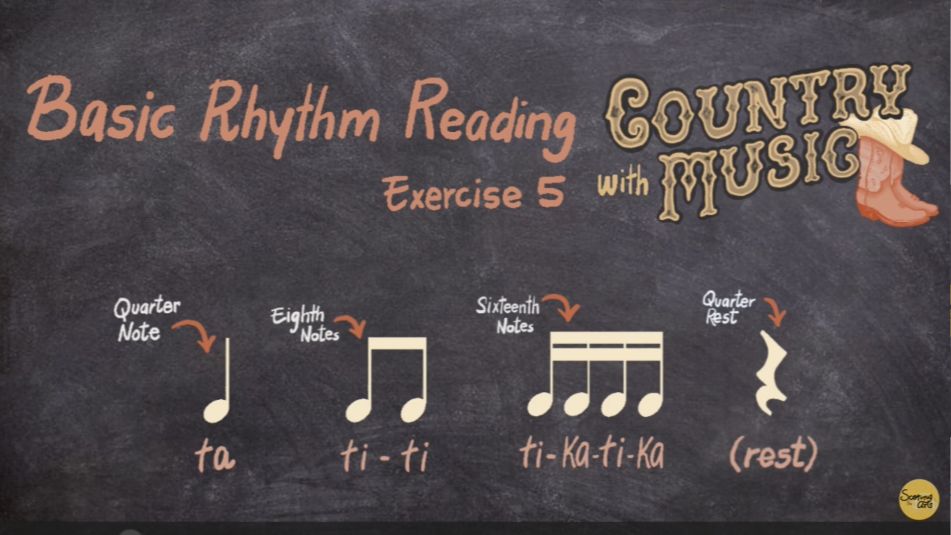 Basic Rhythm Reading
Exercise 5
with
COUNTRY
MUSIC
Quarter
Note
Eighth
Notes
Sixteenth
Notes
Quarter
Rest
ta
ti - ti
ti-Ka-ti-Ka
(rest)